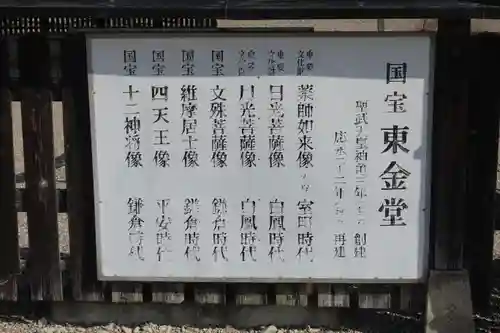 国宝 東金堂
聖武天皇神亀三年 創建
応永二十二年 再建
重要文化財 薬師如来像 室町時代
重要文化財 日光菩薩像 白鳳時代
重要文化財 月光菩薩像 白鳳時代
国宝 文殊菩薩像 鎌倉時代
国宝 維摩居士像 鎌倉時代
国宝 四天王像 平安時代
国宝 十二神将像 鎌倉時代